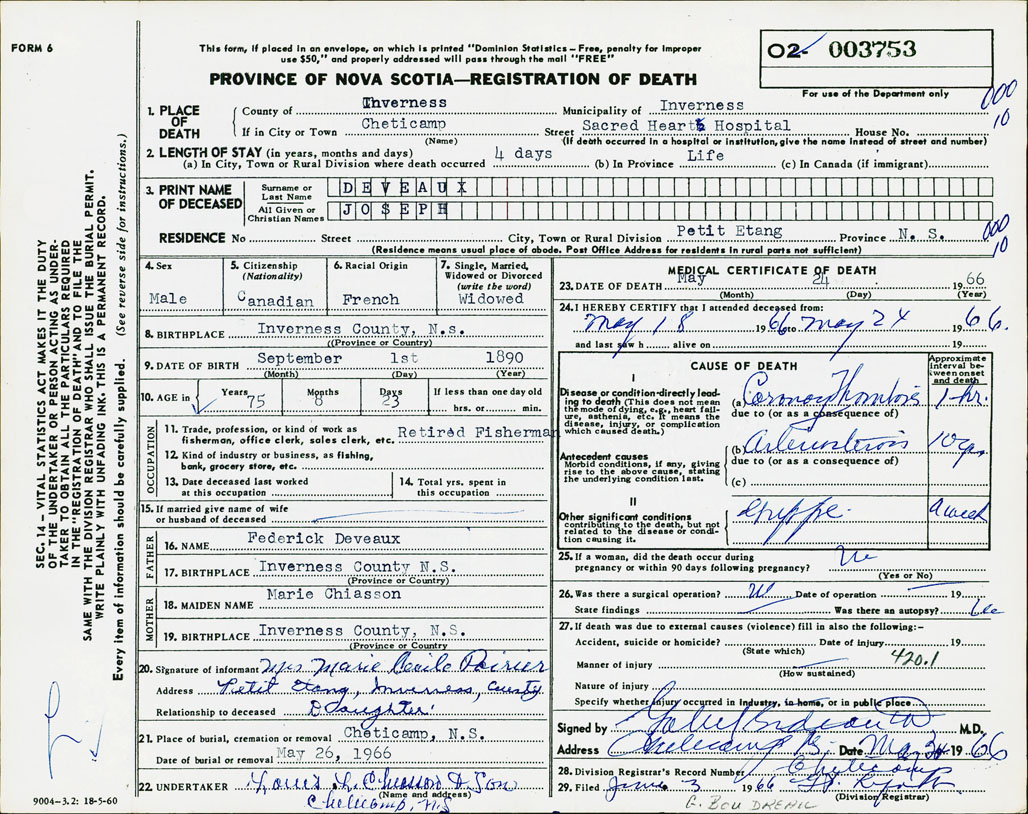 FORM 6
This form, if placed in an envelope, on which is printed "Dominion Statistics – Free, penalty for improper
use $50," and properly addressed will pass through the mail "FREE"
O2- 003753
For use of the Department only
PROVINCE OF NOVA SCOTIA—REGISTRATION OF DEATH
000
10
1. PLACE OF DEATH
County of Inverness Municipality of Inverness
If in City or Town Cheticamp Street Sacred Heart Hospital House No.
(Name) (If death occurred in a hospital or institution, give the name instead of street and number)
2. LENGTH OF STAY (in years, months and days)
(a) In City, Town or Rural Division where death occurred 4 days (b) In Province Life (c) In Canada (if immigrant)
3. PRINT NAME OF DECEASED
Surname or Last Name DEVEAUX
All Given or Christian Names JOSEPH
000
10
RESIDENCE No Street City, Town or Rural Division Petit Etang Province N. S.
(Residence means usual place of abode. Post Office Address for residents in rural parts not sufficient)
4. Sex
Male
5. Citizenship
(Nationality)
Canadian
6. Racial Origin
French
7. Single, Married,
Widowed or Divorced
(write the word)
Widowed
8. BIRTHPLACE Inverness County, N.s.
((Province or Country)
9. DATE OF BIRTH September 1st 1890
(Month) (Day) (Year)
10. AGE in Years 75 Months 8 Days 23 If less than one day old
hrs. or min.
OCCUPATION
11. Trade, profession, or kind of work as
fisherman, office clerk, sales clerk, etc. Retired Fisherman
12. Kind of industry or business, as fishing,
bank, grocery store, etc.
13. Date deceased last worked
at this occupation
14. Total yrs. spent in
this occupation
15. If married give name of wife
or husband of deceased
FATHER
16. NAME Federick Deveaux
17. BIRTHPLACE Inverness County N.S.
(Province or Country)
MOTHER
18. MAIDEN NAME Marie Chiasson
19. BIRTHPLACE Inverness County, N.S.
(Province or Country
20. Signature of informant Mrs Marie Cecile Poirier
Address Petit Etang, Inverness, County
Relationship to deceased Daughter
21. Place of burial, cremation or removal Cheticamp, N.S.
Date of burial or removal May 26, 1966
22. UNDERTAKER Louis L. Chiasson & Son
(Name and address)
Cheticamp, N.S
9004–3.2: 18-5-60
MEDICAL CERTIFICATE OF DEATH
23. DATE OF DEATH May 24 1966
(Month) (Day) (Year)
24. I HEREBY CERTIFY that I attended deceased from:
May 18 1966 to May 24 1966.
and last saw h alive on 19
CAUSE OF DEATH
Approximate
interval be-
tween onset
and death
I
Disease or condition directly lead-
ing to death (This does not mean
the mode of dying, e.g., heart fail-
ure, asthenia, etc. It means the
disease, injury, or complication
which caused death.)
(a) Coronary Thrombosis 1 hr.
due to (or as a consequence of)
Antecedent causes
Morbid conditions, if any, giving
rise to the above cause, stating
the underlying condition last.
(b) 10 yrs
due to (or as a consequence of)
(c)
II
Other significant conditions
contributing to the death, but not
related to the disease or condi-
tion causing it.
Grippe. A week
25. If a woman, did the death occur during
pregnancy or within 90 days following pregnancy?
(Yes or No)
26. Was there a surgical operation? Date of operation 19
State findings Was there an autopsy?
27. If death was due to external causes (violence) fill in also the following:–
Accident, suicide or homicide? Date of injury 19
(State which)
420.1
Manner of injury
(How sustained)
Nature of injury
Specify whether injury occurred in Industry, in home, or in public place
Signed by M.D.
Address Cheticamp Date May 1966
28. Division Registrar's Record Number
29. Filed June 3 1966
(Division Registrar)
SEC. 14 – VITAL STATISTICS ACT MAKES IT THE DUTY
OF THE UNDERTAKER OR PERSON ACTING AS UNDER-
TAKER TO OBTAIN ALL THE PARTICULARS REQUIRED
IN THE "REGISTRATION OF DEATH" AND TO FILE THE
SAME WITH THE DIVISION REGISTRAR WHO SHALL ISSUE THE BURIAL PERMIT.
WRITE PLAINLY WITH UNFADING INK. THIS IS A PERMANENT RECORD.
Every item of information should be carefully supplied. (See reverse side for instructions.)